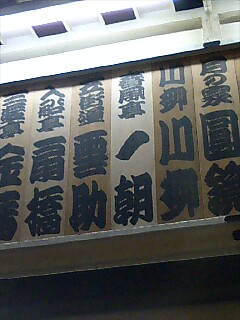 月の家
圓鏡
川柳
川柳
春風亭
一朝
五街道
雲助
入船亭
扇橋
三遊亭